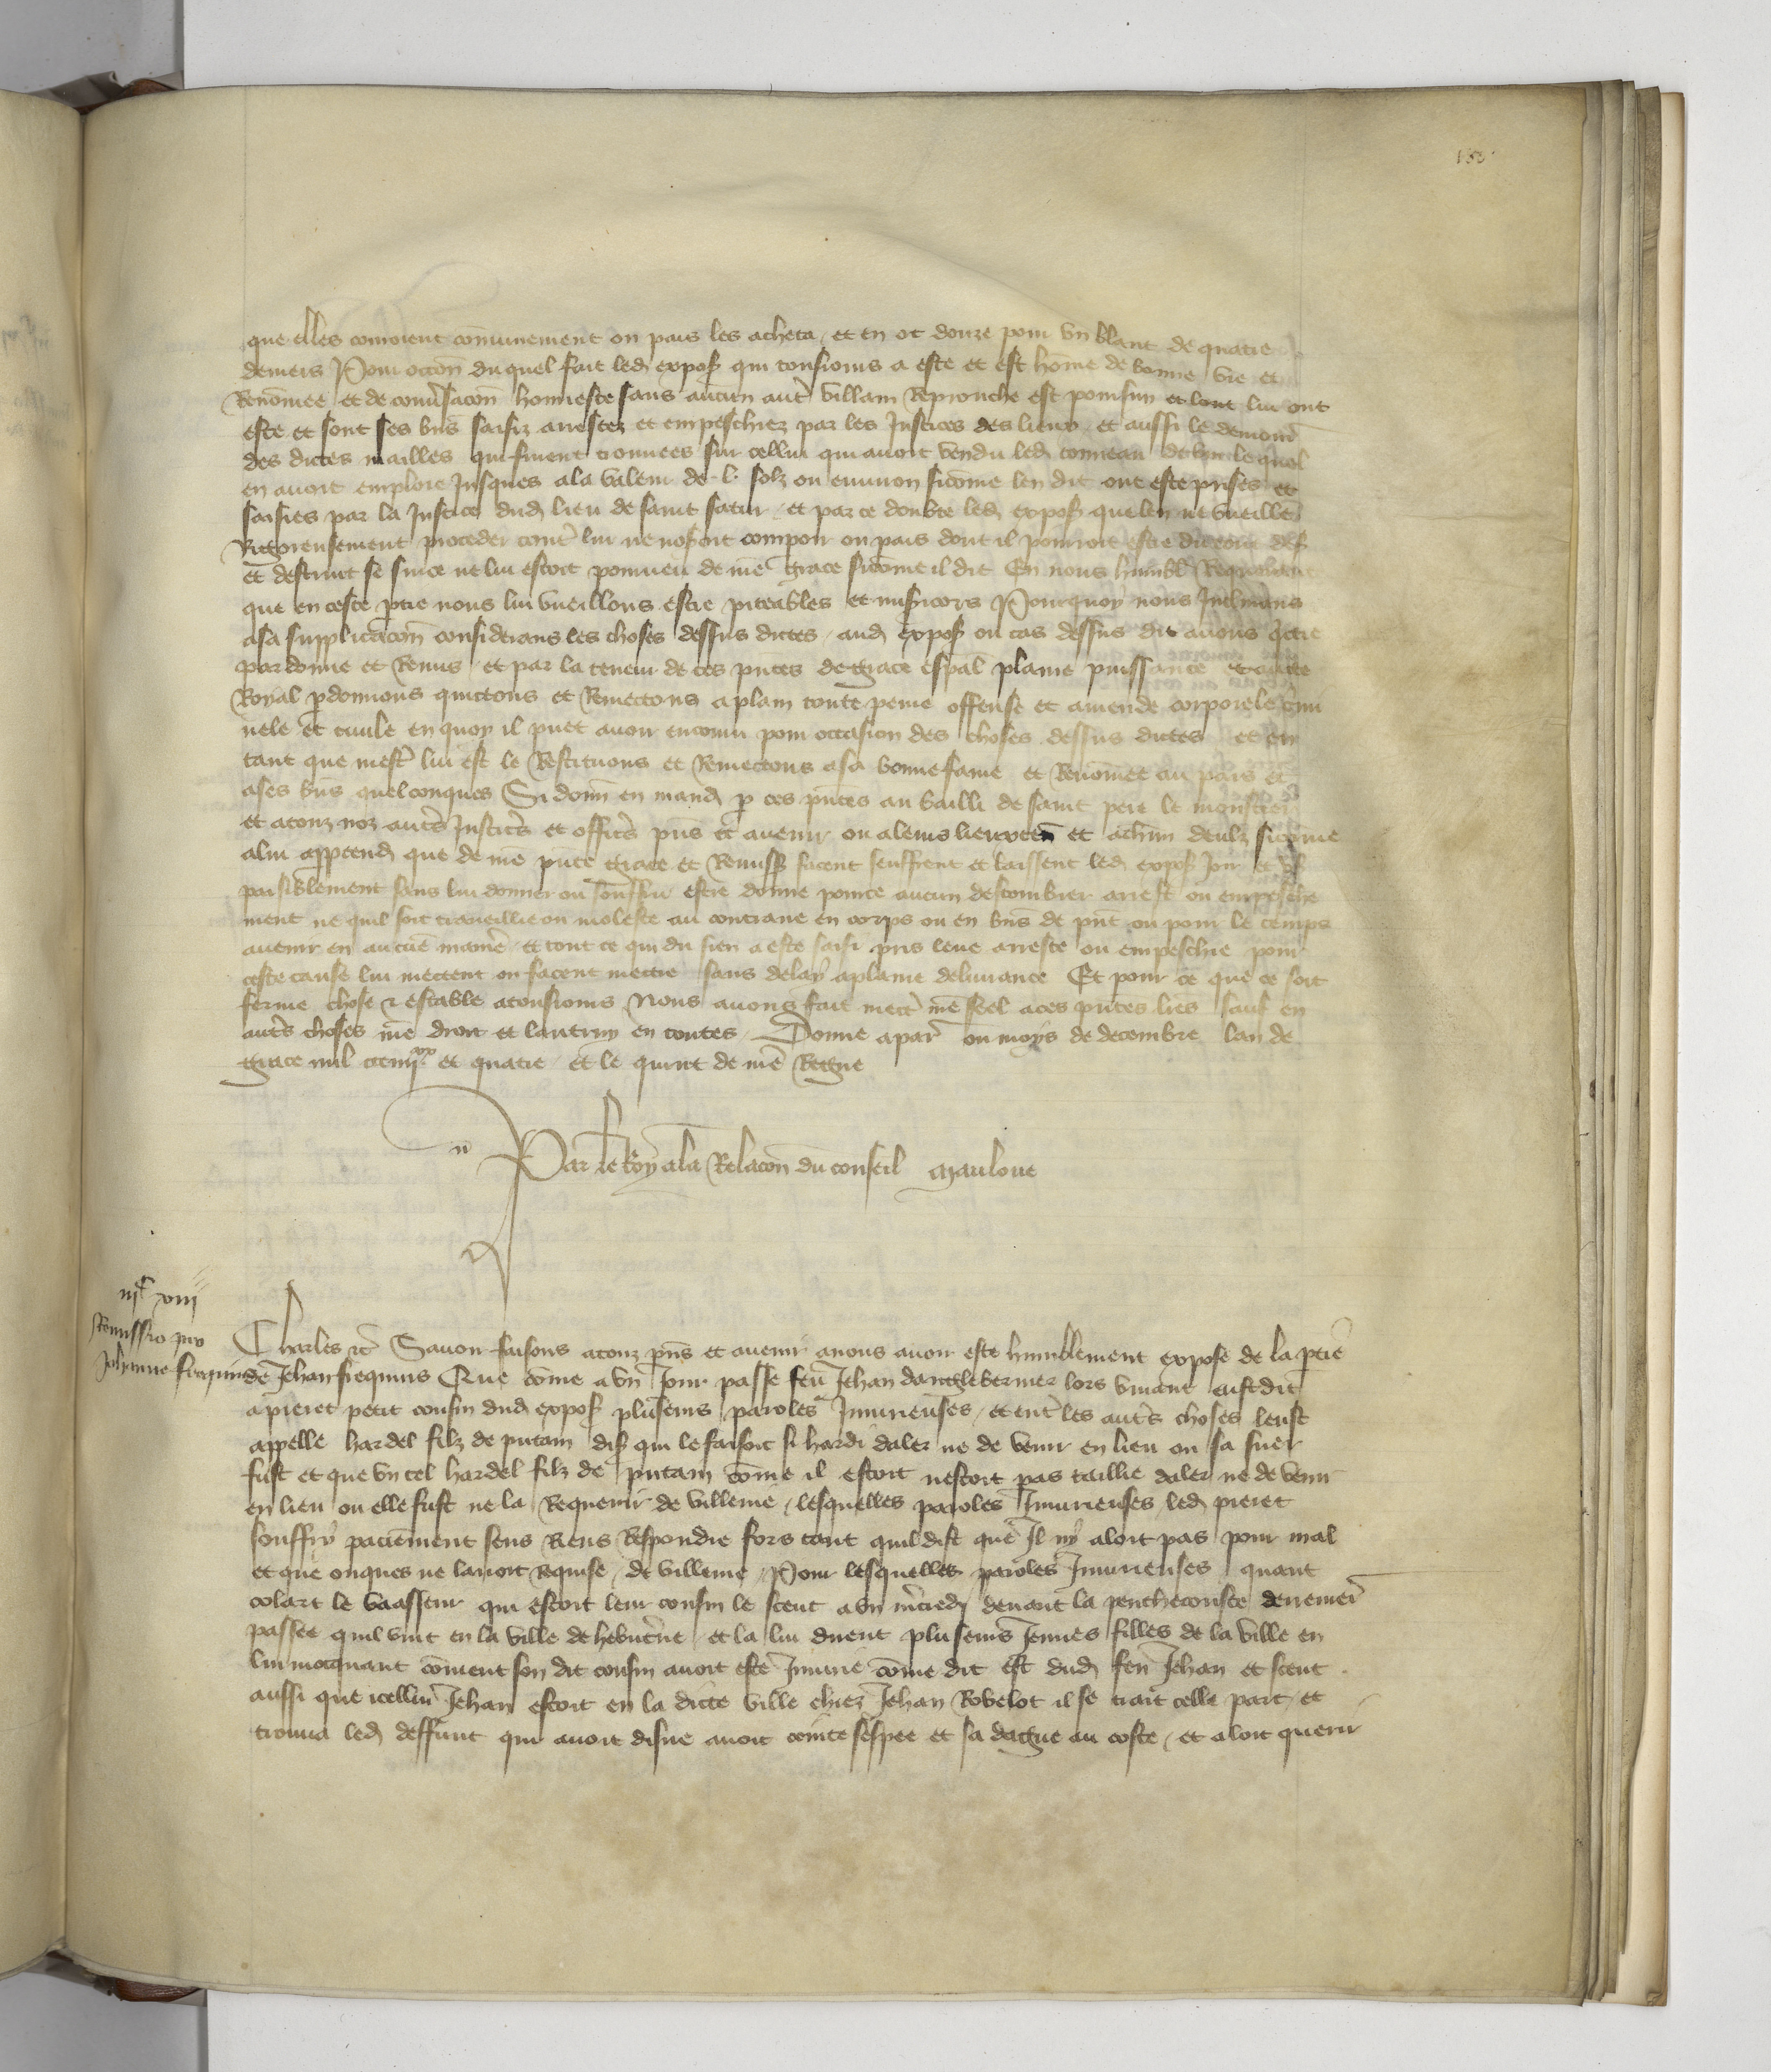 que elles couroient cōmunement ou pais les acheta, et en ot douze pour vn blanc de quatre
deniers Pour occōn du quel fait led expos qui tousiours a este et est hōme de bonne vie et
Renōmee et de conusacōn honneste sans aucun autr villain Reprouche est poursuy et lont lui ont
este et sont ses bns saisiz arrestez et empeschiez par les Justices des lieux et aussi le demour
des dictes mailles qui furent trouuees sur cellui qui auoit vendu led tonneau de vin lequel
en auoit emploie Jusques a la valeur de .l. solz ou enuiron sicōme len dit ont este prises et
saisies par la Justice dud lieu de saint satur, et par ce doubte led expos que len ne vueille
Rigoreusement proceder contr lui ne nosoit comparoir ou pais dont il pourroit estre
et destruit se sur ce ne lui estoit pourueu de nre grace sicōme il dit En nous humbl Requerant
que en ceste ptie nous lui vueillons estre piteables et misicors Pourquoy nous Inclinans
a sa supplicacōn considerans les choses dessus dictes, aud expos ou cas dessus dit auons qctie
pardonne et Remis, et par la teneur de ces pntes de grace espāl plaine puissance et auctte
Royal pdonnons quictons et Remectons a plain toute peine offense et amende corporele crim
nele et ciuile en quoy il puet auoir encouru pour occasion des choses dessus dictes et en
tant que mestr lui est le Restituons et Remectons a sa bonne fame et Renōmee au pais et
a ses bns quelconques Si donn en mand p ces pntes au bailli de saint pere le monstier
et a touz noz autrs Justicrs et officrs pns et auenir ou a leurs lieuxten et a chun deulz sicōme
a lui apptend que de nre pnte grace et Remiss facent seuffrent et laissent led expos Joir et vs
paisiblement sans lui donner ou souffrir estre donne pointe aucun destourbier arrest ou empesche
ment ne quil soit traueillie ou moleste au contraire en corps ou en bns de pnt ou pour le temps
auenir en aucuē manie, et tout ce qui du sien a este saisi pris leue arreste ou empeschie pour
ceste cause lui mectent ou facent mectre sans delay a plaine deliurance Et pour ce que ce soit
ferme chose & estable a tousiours Nous auons fait mectr nre seel a ces pntes lres sauf en
autrs choses nre droit et lautruy en toutes, Donne a par ou moys de decembre lan de
grace mil ccc iiijxx et quatre, et le quint de nre Regne
n Par le Roy a la Relacōn du conseil Mauloue
iijc xiiij
Remissio pro
Johanne
Charles etc Sauoir faisons a touz pns et auenir a nous auoir este humblement expose de la ptie
de Jehan sequins Que cōme a vn Jour passe feu Jehan danglebermer lors viuant eust dit
a pieret petit cousin dud expos plusieurs paroles Iniurieuses, et entr les autrs choses leust
appelle hardel filz de putain dis qui le faisoit si hardi daler ne de venir en lieu ou sa suer
fust et que vn tel hardel filz de putain cōme il estoit nestoit pas taillie daler ne de venir
en lieu ou elle fust ne la Requerir de villenie, lesquelles paroles Iniurieuses led pieret
souffry paciēment sens Riens Respondre fors tant quil dist que Il ny aloit pas pour mal
et que onques ne lauoit Requise, de villenie, Pour lesquelles paroles Iniurieuses quant
colart le vasseur qui estoit leur cousin le sceut a vn mcredi deuant la penthecouste derremer
passee quil vint en la ville de hebutne et la lui dirent plusieurs Jeunes filles de la ville en
lui mocquant cōment son dit cousin auoit este Iniurie cōme dit est dud feu Jehan et sceut
aussi que icellui Jehan estoit en la dicte ville chiez Jehan Robelot il se trait celle part, et
trouua led deffunt qui auoit disne auoit ceinte sespee et sa dague au coste, et aloit querir